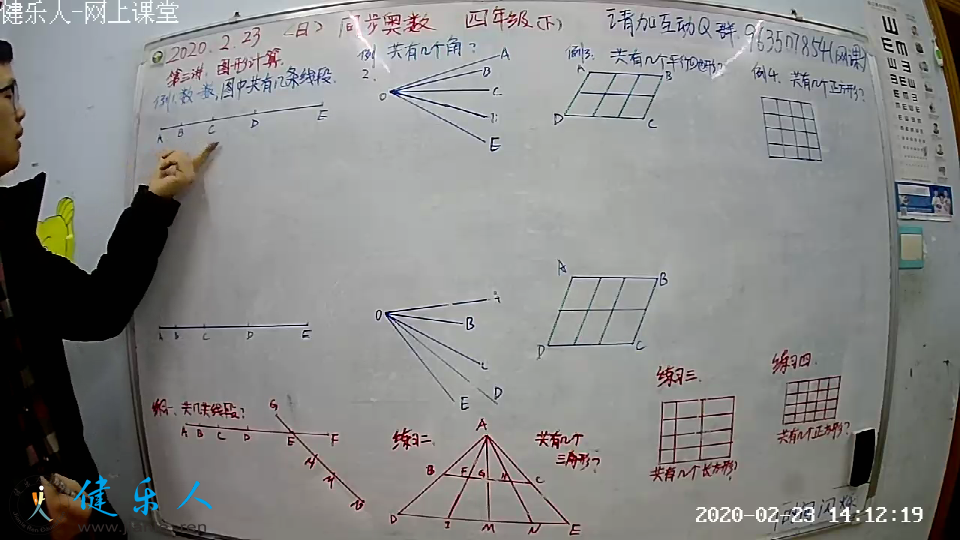 健乐人-网上课堂
2020.2.23 (日) 同步奥数 四年级(下) 请加互动Q群 963507854(网课)
第三讲. 图形计算.
例1. 数一数, 图中共有几条线段.
A B C D E
例2. 共有几个角?
O A B C D E
例3. 共有几个平行四边形?
A B
D C
例4. 共有几个正方形?
A B C D E
O B C D E
A B
D C
练习一. 共几条线段?
A B C D E F
G
H
M
练习二. 共有几个三角形?
A
B F G H C
D I M N E
练习三.
共有几个长方形?
练习四.
共有几个正方形?
健乐人
2020-02-23 14:12:19